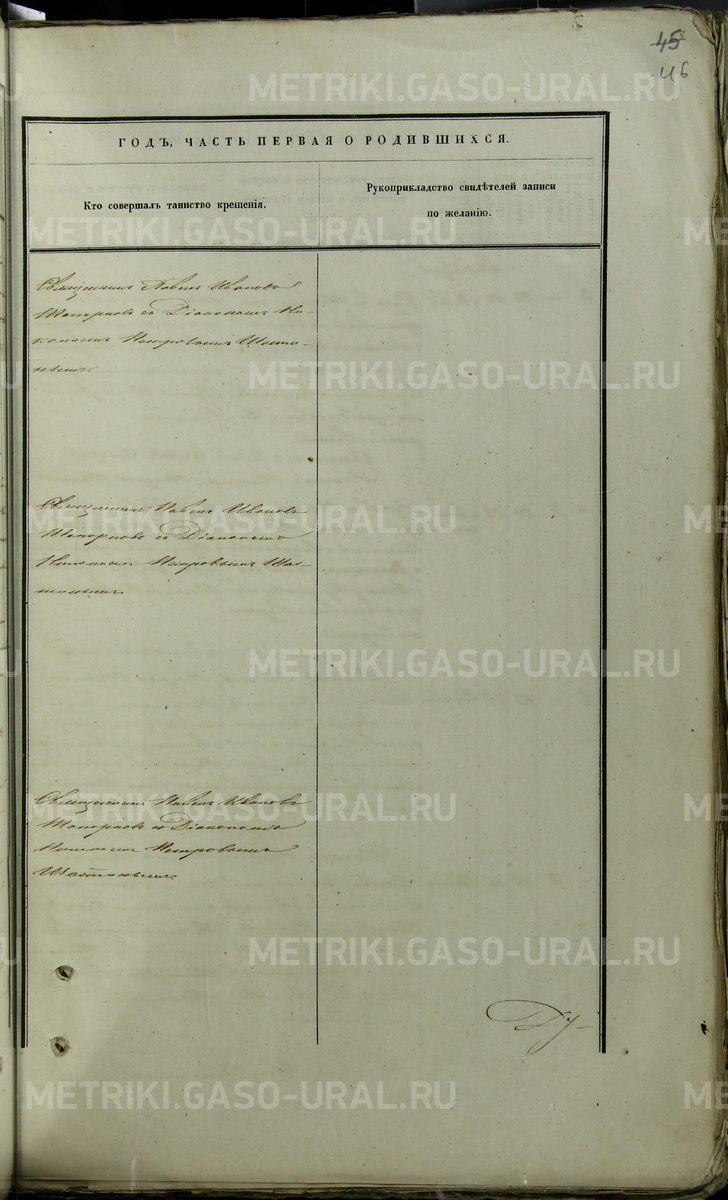 45
46
ГОДЪ, ЧАСТЬ ПЕРВАЯ О РОДИВШИХСЯ.
Кто совершалъ таинство крещенія.
Рукоприкладство свидѣтелей записи
по желанію.
Священникъ Павелъ Ивановъ
Топорковъ съ Діакономъ Ни-
колаемъ Петровымъ
Священникъ Павелъ Ивановъ
Топорковъ съ Діакономъ
Николаемъ Петровымъ
Священникъ Павелъ Ивановъ
Топорковъ съ Діакономъ
Николаемъ Петровымъ
METRIKI.GASO-URAL.RU
METRIKI.GASO-URAL.RU
METRIKI.GASO-URAL.RU
METRIKI.GASO-URAL.RU
METRIKI.GASO-URAL.RU
METRIKI.GASO-URAL.RU
METRIKI.GASO-URAL.RU
METRIKI.GASO-URAL.RU